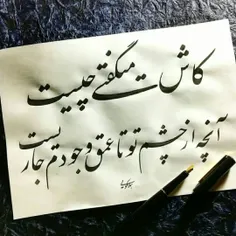 کاش میگفتی چیست
آنچه از چشم تو تا عمق وجودم جاریست